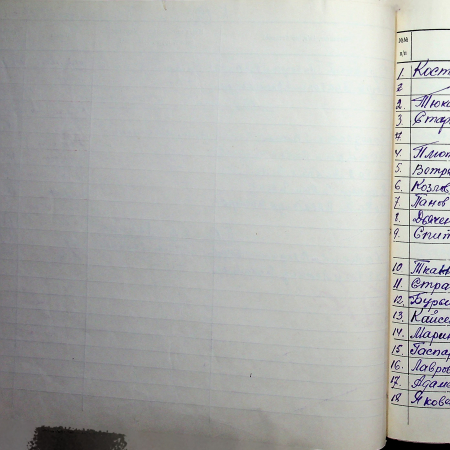 №№
п/п
1. Кост
2
2. Тюка
3. Стар
7
4. Плот
5. Вотр
6. Козлов
7. Панов
8. Дьячен
9. Спит
10 Ткав
11. Стра
12. Буры
13. Кайсе
14. Марин
15. Гаспар
16. Лавров
17. Адамо
18. Якове